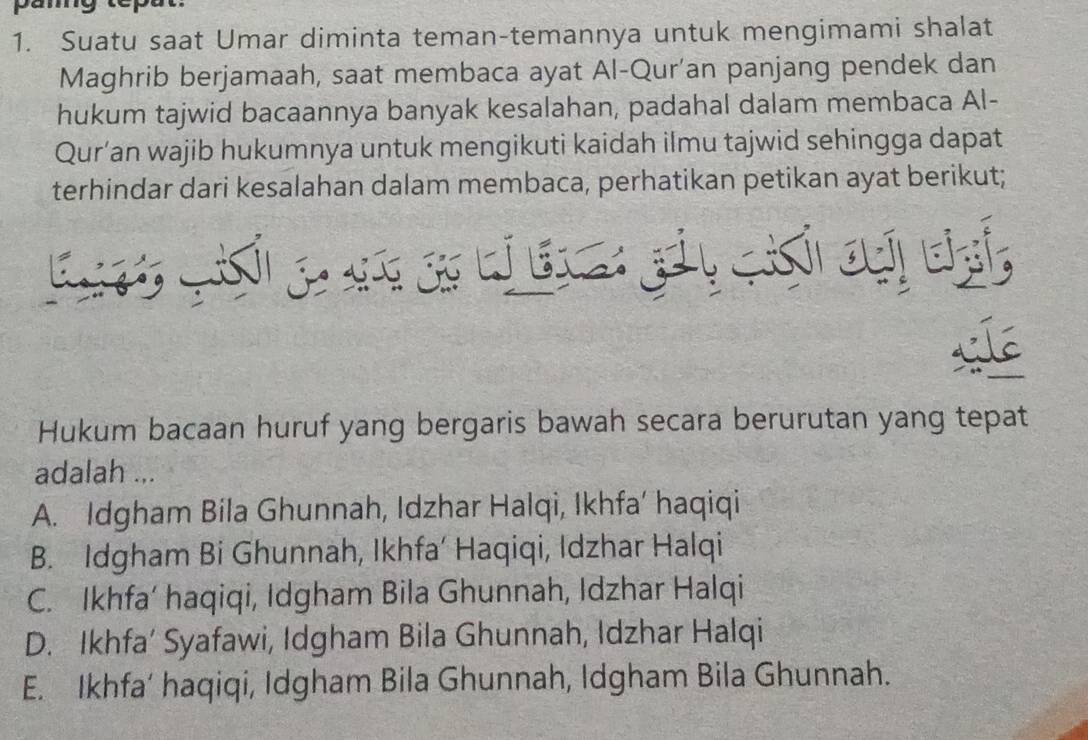 paling tepat!
1. Suatu saat Umar diminta teman-temannya untuk mengimami shalat
Maghrib berjamaah, saat membaca ayat Al-Qur'an panjang pendek dan
hukum tajwid bacaannya banyak kesalahan, padahal dalam membaca Al-
Qur'an wajib hukumnya untuk mengikuti kaidah ilmu tajwid sehingga dapat
terhindar dari kesalahan dalam membaca, perhatikan petikan ayat berikut;
وَأَنْزَلْنَآ إِلَيْكَ الْكِتٰبَ بِالْحَقِّ مُصَدِّقًا لِّمَا بَيْنَ يَدَيْهِ مِنَ الْكِتٰبِ وَمُهَيْمِنًا
عَلَيْهِ
Hukum bacaan huruf yang bergaris bawah secara berurutan yang tepat
adalah ...
A. Idgham Bila Ghunnah, Idzhar Halqi, Ikhfa' haqiqi
B. Idgham Bi Ghunnah, Ikhfa' Haqiqi, Idzhar Halqi
C. Ikhfa' haqiqi, Idgham Bila Ghunnah, Idzhar Halqi
D. Ikhfa' Syafawi, Idgham Bila Ghunnah, Idzhar Halqi
E. Ikhfa' haqiqi, Idgham Bila Ghunnah, Idgham Bila Ghunnah.